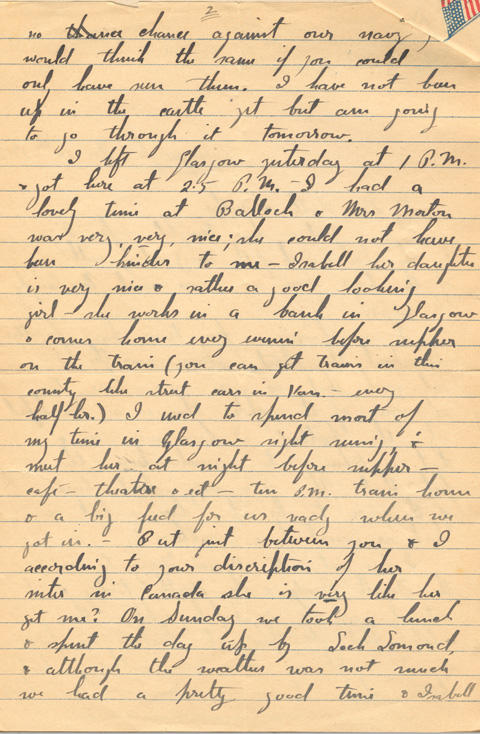 2
no chance chance against our navy,
would think the same if you could
only have seen them. I have not been
up in the castle yet but am going
to go through it tomorrow.
I left Glasgow yesterday at 1 P.M.
& got here at 2.5 P.M. – I had a
lovely time at Balloch & Mrs Morton
was very, very, nice; she could not have
been kinder to me – Isabell her daughter
is very nice & rather a good looking
girl – she works in a bank in Glasgow
& comes home every evenin before supper
on the train (you can get trains in this
county like street cars in Van. – every
half hr.) I used to spend most of
my time in Glasgow sight seeing, &
meet her at night before supper –
café – theatre & ect – ten P.M. train home
& a big feed for us ready when we
got in. – But just between you & I
according to your discription of her
sister in Canada she is very like her
get me? On Sunday we took a lunch
& spent the day up by Loch Lomond,
& although the weather was not much
we had a pretty good time & Isabell